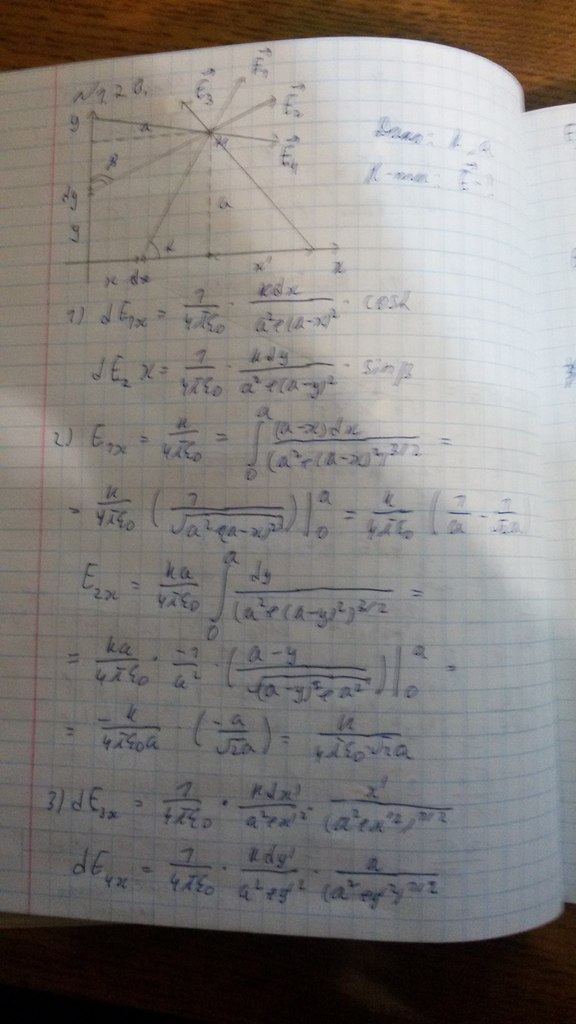 y
a
a
β
dy
y
α
x dx
x'
x
E⃗₃
E⃗₁
E⃗₂
E⃗₄
Дано: k, a
1) dE₁ₓ = 1/(4πε₀) · kdx/(a²+(a-x)²) · cosα
dE₂ x = 1/(4πε₀) · kdy/(a²+(a-y)²) · sinβ
2) E₁ₓ = k/(4πε₀) = ∫₀ᵃ (a-x)dx/(a²+(a-x)²)^(3/2) =
= k/(4πε₀) (1/√(a²+(a-x)²))|₀ᵃ = k/(4πε₀) (1/a - 1/(√2a)
E₂ₓ = ka/(4πε₀) ∫₀ᵃ dy/(a²+(a-y)²)^(3/2) =
= ka/(4πε₀) · -1/a² · (a-y/√((a-y)²+a²))|₀ᵃ =
= -k/(4πε₀a) · (-a/(√2a)) = k/(4πε₀√2a)
3) dE₃ₓ = 1/(4πε₀) · kdx'/(a²+x'²) · x'/(a²+x'²)^(3/2)
dE₄ₓ = 1/(4πε₀) · kdy'/(a²+y'²) · a/(a²+y'²)^(3/2)